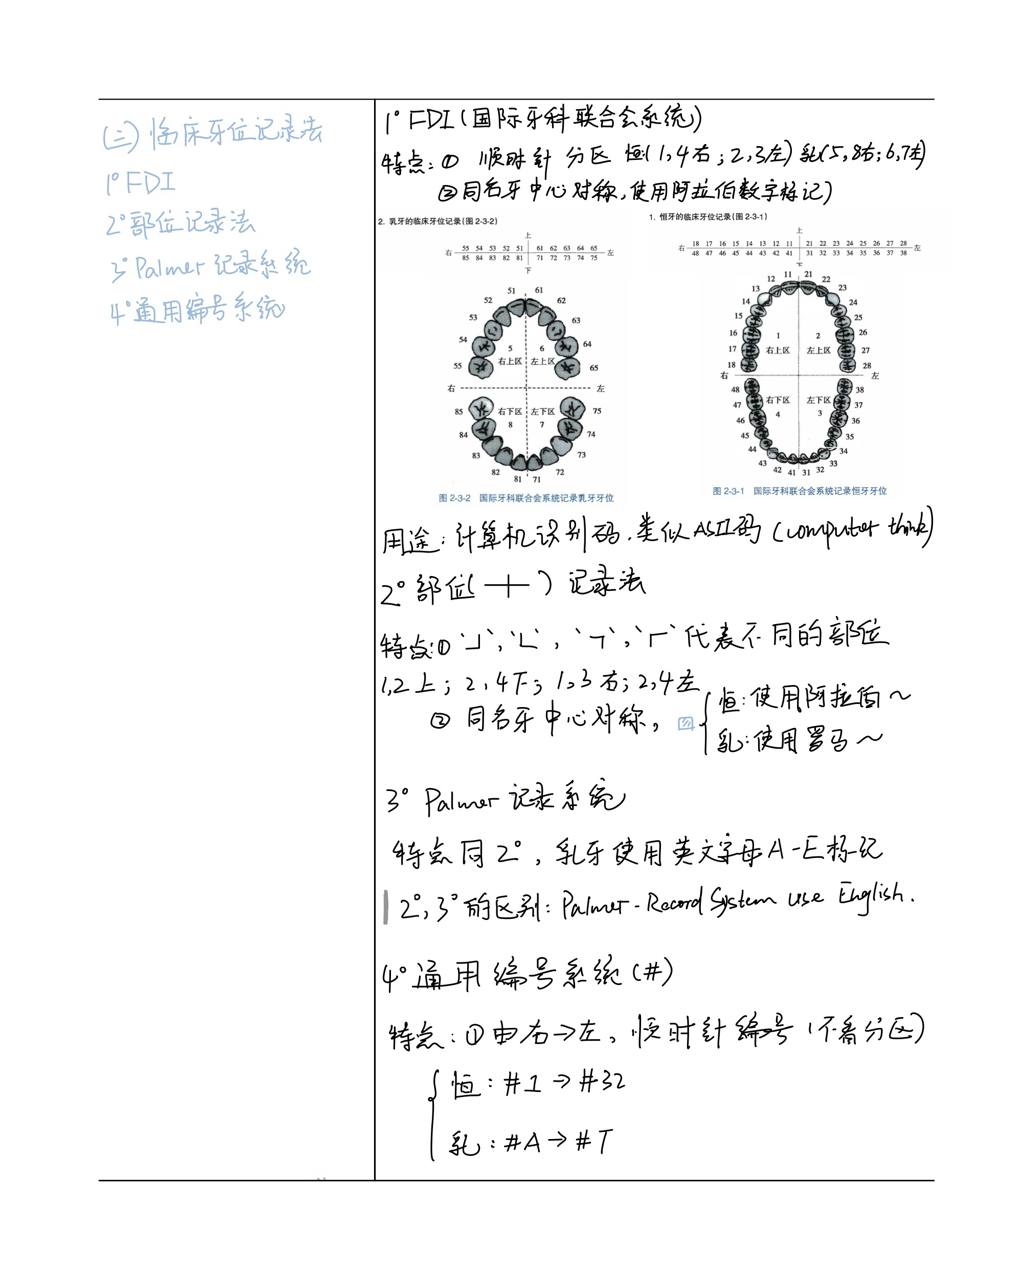 (二) 临床牙位记录法
1° FDI
2° 部位记录法
3° Palmer 记录系统
4° 通用编号系统
1° FDI (国际牙科联合会系统)
特点: ① 顺时针 分区 恒(1,4右; 2,3左) 乳(5,8右; 6,7左)
② 同名牙中心对称, 使用阿拉伯数字标记)
2. 乳牙的临床牙位记录(图 2-3-2)
上
右 55 54 53 52 51 61 62 63 64 65 左
85 84 83 82 81 71 72 73 74 75
下
51 61
52 62
53 63
54 64
5 6
右上区 左上区
55 65
右 左
85 右下区 左下区 75
8 7
84 74
83 73
82 72
81 71
图 2-3-2 国际牙科联合会系统记录乳牙牙位
1. 恒牙的临床牙位记录(图 2-3-1)
上
右 18 17 16 15 14 13 12 11 21 22 23 24 25 26 27 28 左
48 47 46 45 44 43 42 41 31 32 33 34 35 36 37 38
下
11 21
12 22
13 23
14 24
15 25
16 1 2 26
17 右上区 左上区 27
18 28
右 左
48 38
47 右下区 左下区 37
46 4 3 36
45 35
44 34
43 42 41 31 32 33
图 2-3-1 国际牙科联合会系统记录恒牙牙位
用途: 计算机识别码. 类似ASII码 (computer think)
2° 部位( ┼ ) 记录法
特点: ① '┘', '└', '┐', '┌' 代表不同的部位
1,2上; 2,4下; 1,3右; 2,4左
② 同名牙中心对称, 图 { 恒: 使用阿拉伯~
乳: 使用罗马~
3° Palmer 记录系统
特点同2°, 乳牙使用英文字母A-E标记
2°, 3°的区别: Palmer-Record System use English.
4° 通用编号系统(#)
特点: ① 由右→左, 顺时针编号 (不看分区)
{ 恒: #1→#32
乳: #A→#T